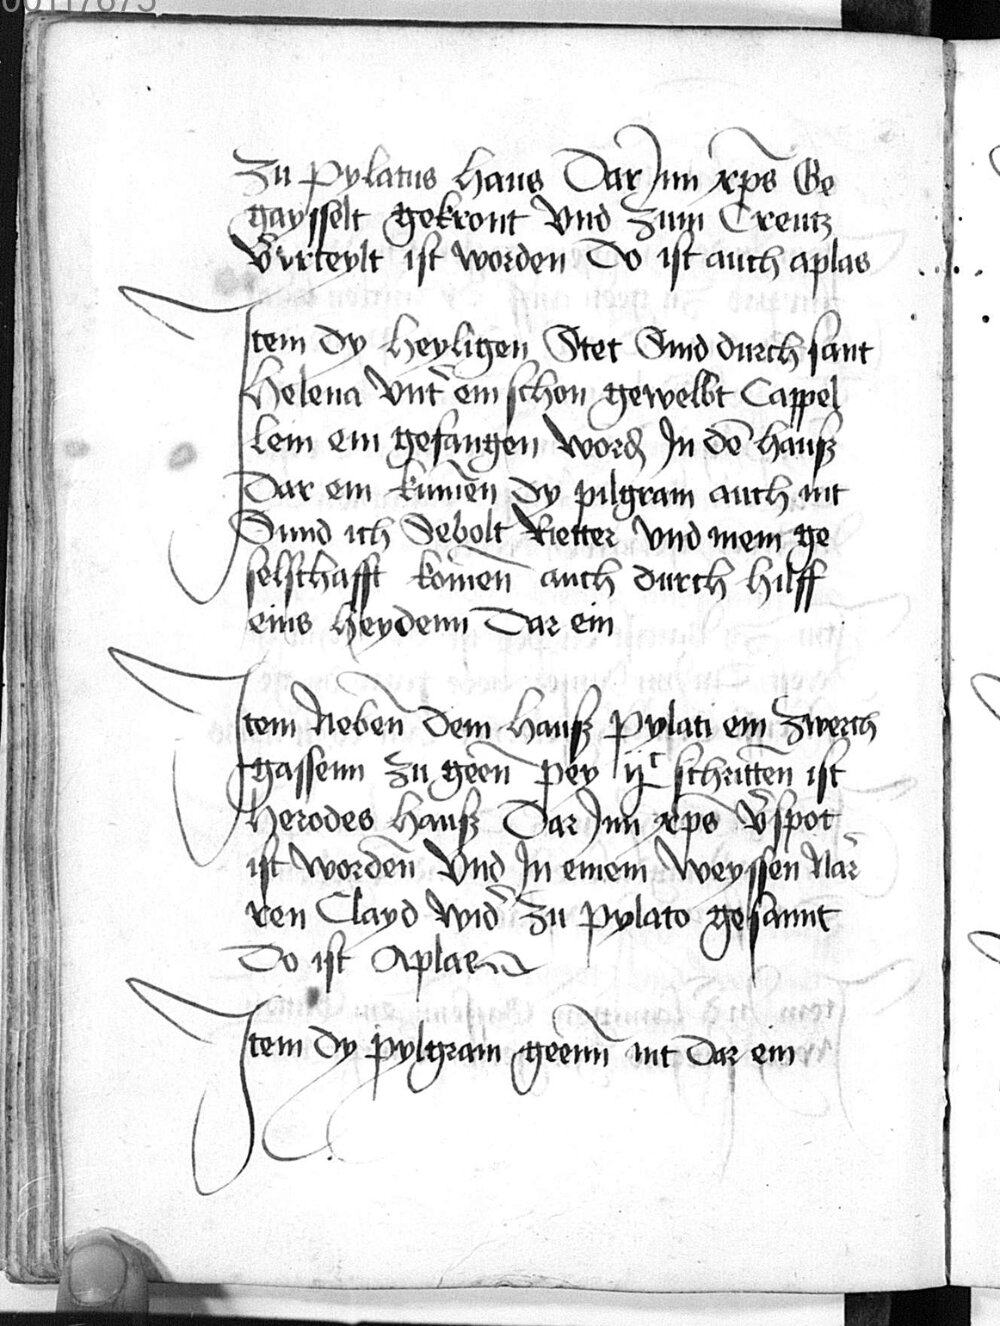 Zu pylatus haus Dar Jnn xp̄s Ge
gaysselt gekront Vnd Zum Creutz
V̄rteylt ist worden Do ist auch aplas
Jtem Dy Heyligen Stet Sind durch sant
Helena Vnt̄ ein schon gewelbt Cappel
lein ein gefangen Word Jn de̅ hauß
Dar ein kumen̅ Dy pilgram auch nit
Sund ich Sebolt Rietter Vnd mein ge
selschafft komen̅ auch durch hilff
eins Heydenn Dar ein
Jtem Neben̅ Dem hauß pylati ein Zwerch
gassenn Zu geen̅ pey ijc schritten̅ ist
Herodes hauß Dar Jnn xp̄s V̄spot
ist worden̅ Vnd Jn einem Weyssen Nar̅
ren Clayd Wid̄ Zu pylato gesannt
Do ist Aplas
Jtem Dy pylgram geenn̅ nit Dar ein